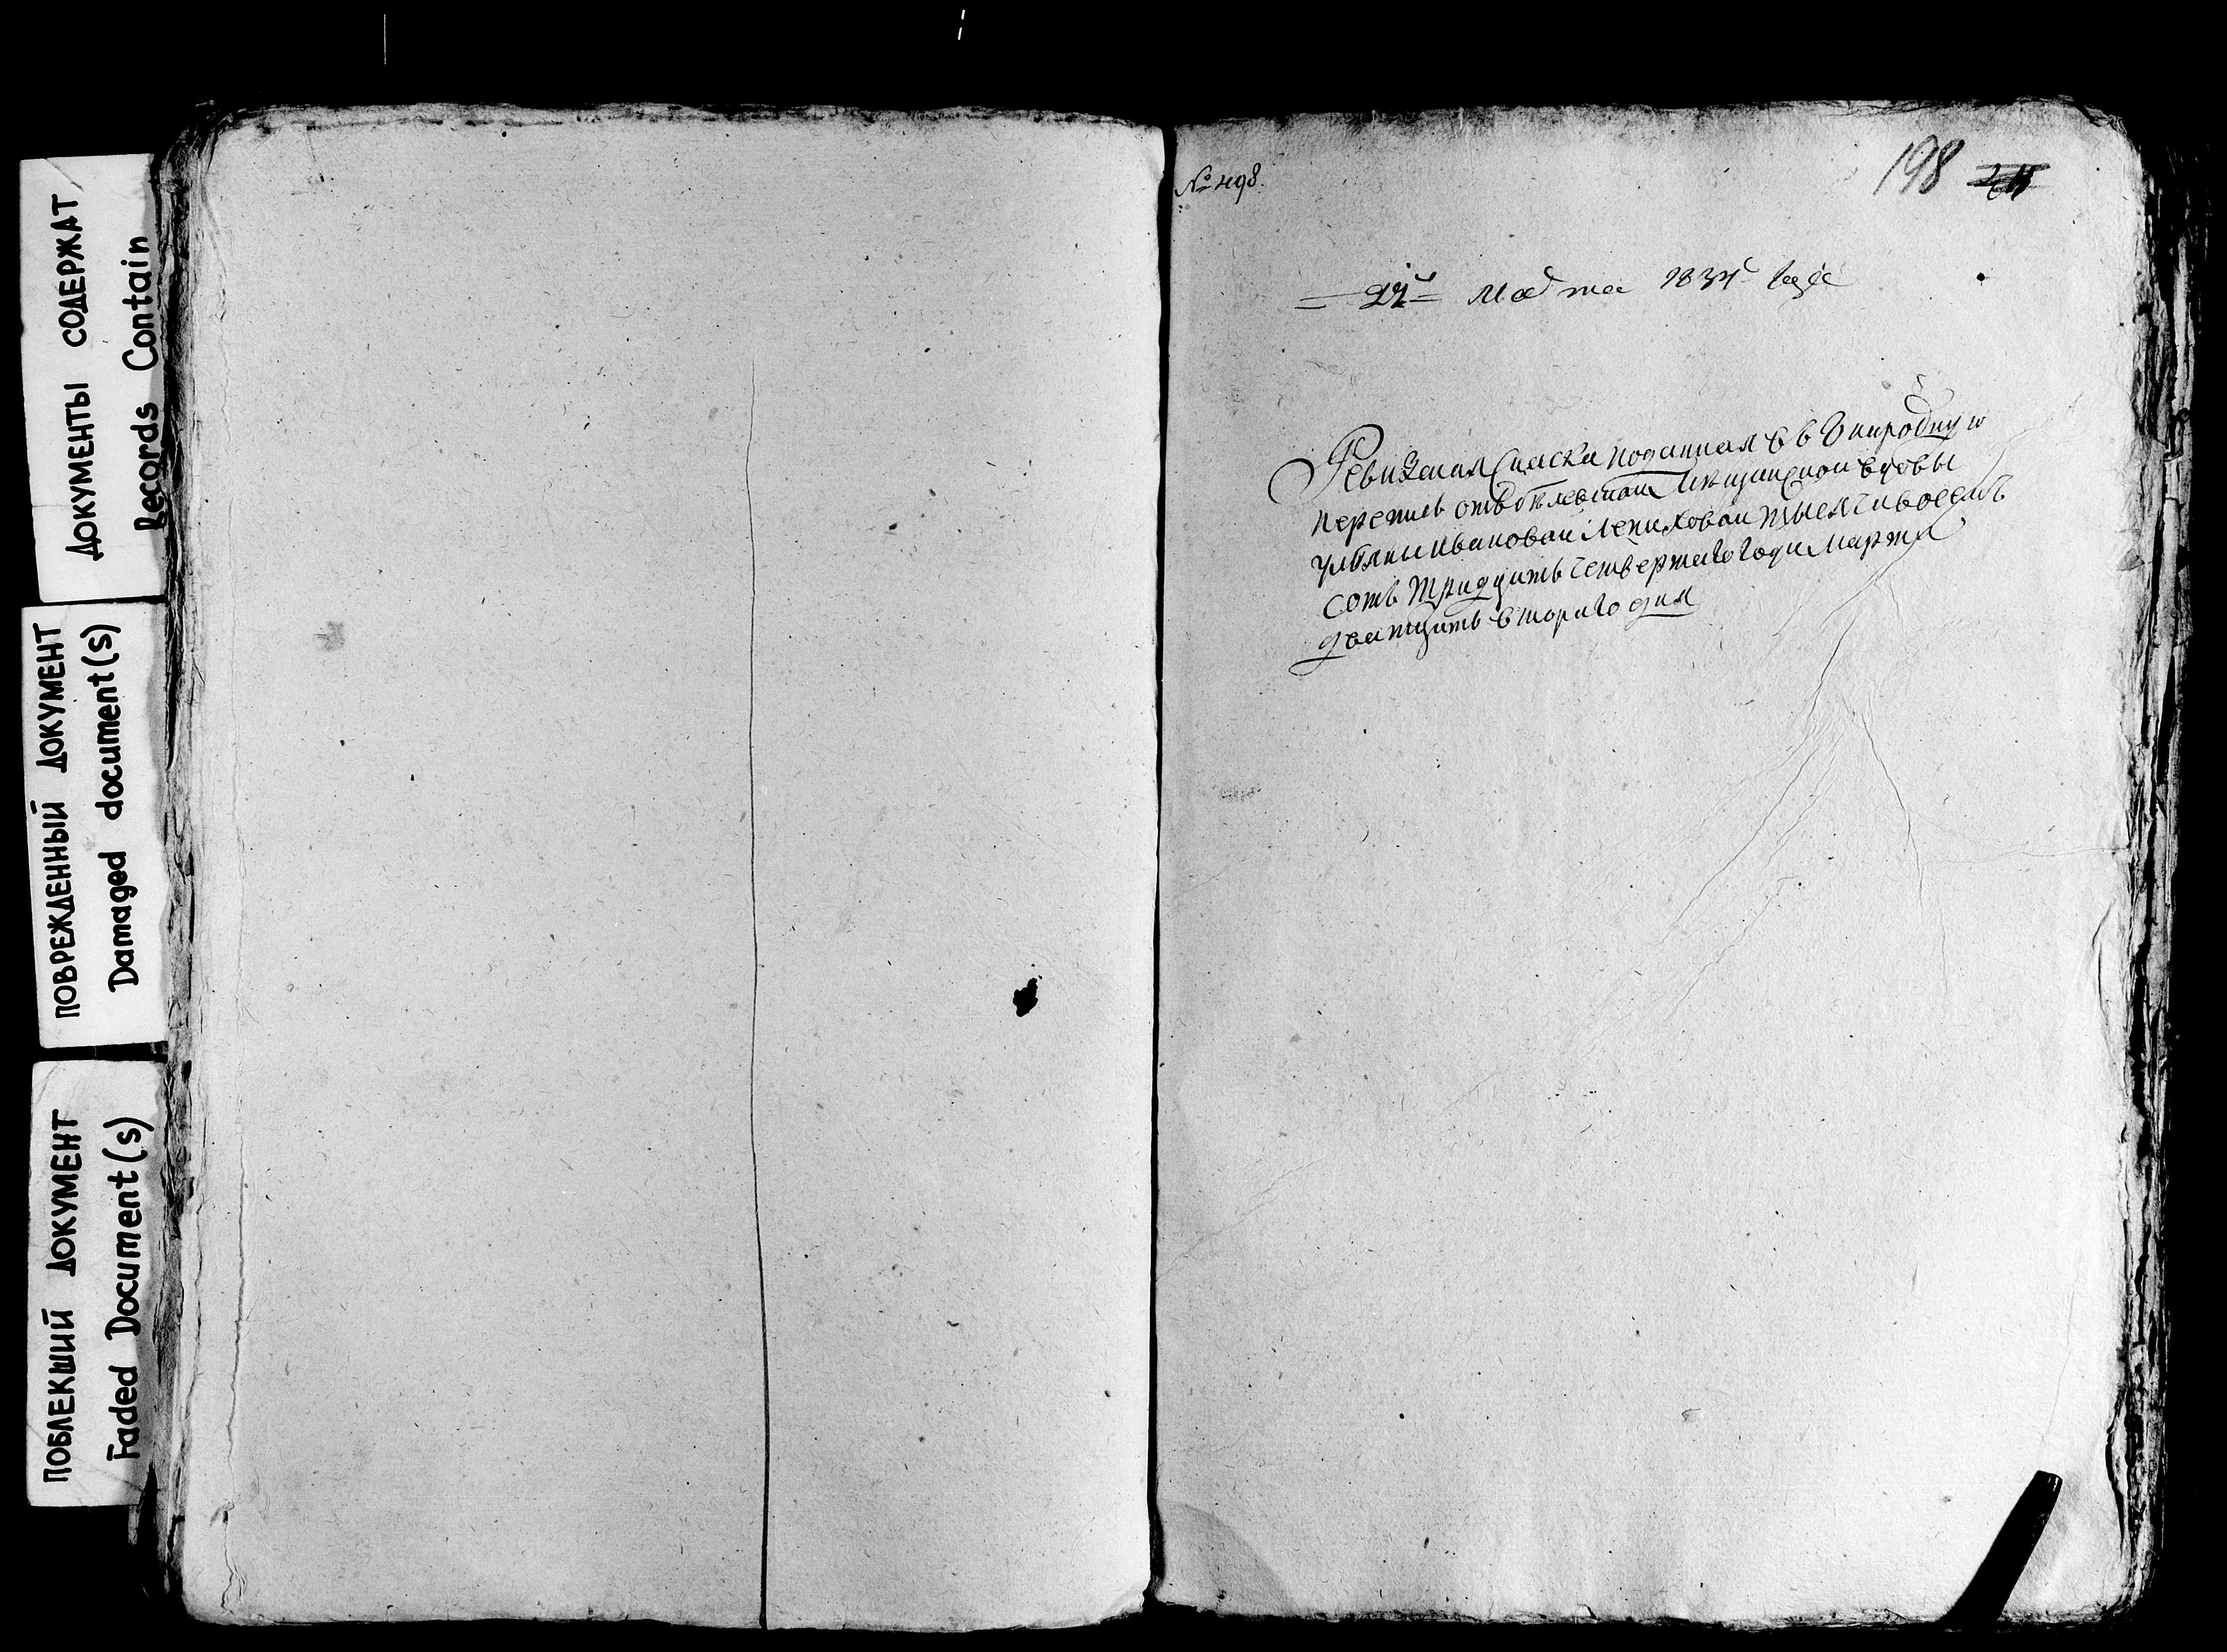 ДОКУМЕНТЫ СОДЕРЖАТ
Records Contain
ПОВРЕЖДЕННЫЙ ДОКУМЕНТ
Damaged document(s)
ПОБЛЕКШИЙ ДОКУМЕНТ
Faded Document(s)
№ 198.
198
Марта 1834 года
Ревизская Скаска поданная в народную
перепись отъ мещанской вдовы
ульяны ивановой Лепиховой тысяча восемъ
сотъ тридцать четвертаго года марта
дватцать втораго дня